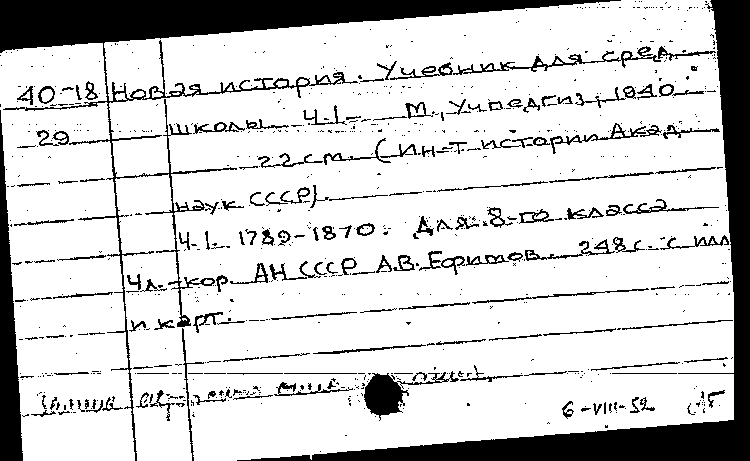 40-18 Новая история. Учебник для сред.
29 школы. Ч.1- М., Учпедгиз, 1940.
22 cm. (Ин-т истории Акад.
наук СССР).
Ч.1. 1789-1870. Для 8-го класса
Чл.-кор. АН СССР А.В. Ефимов. 248 с. с илл
и карт.
6-VIII-52